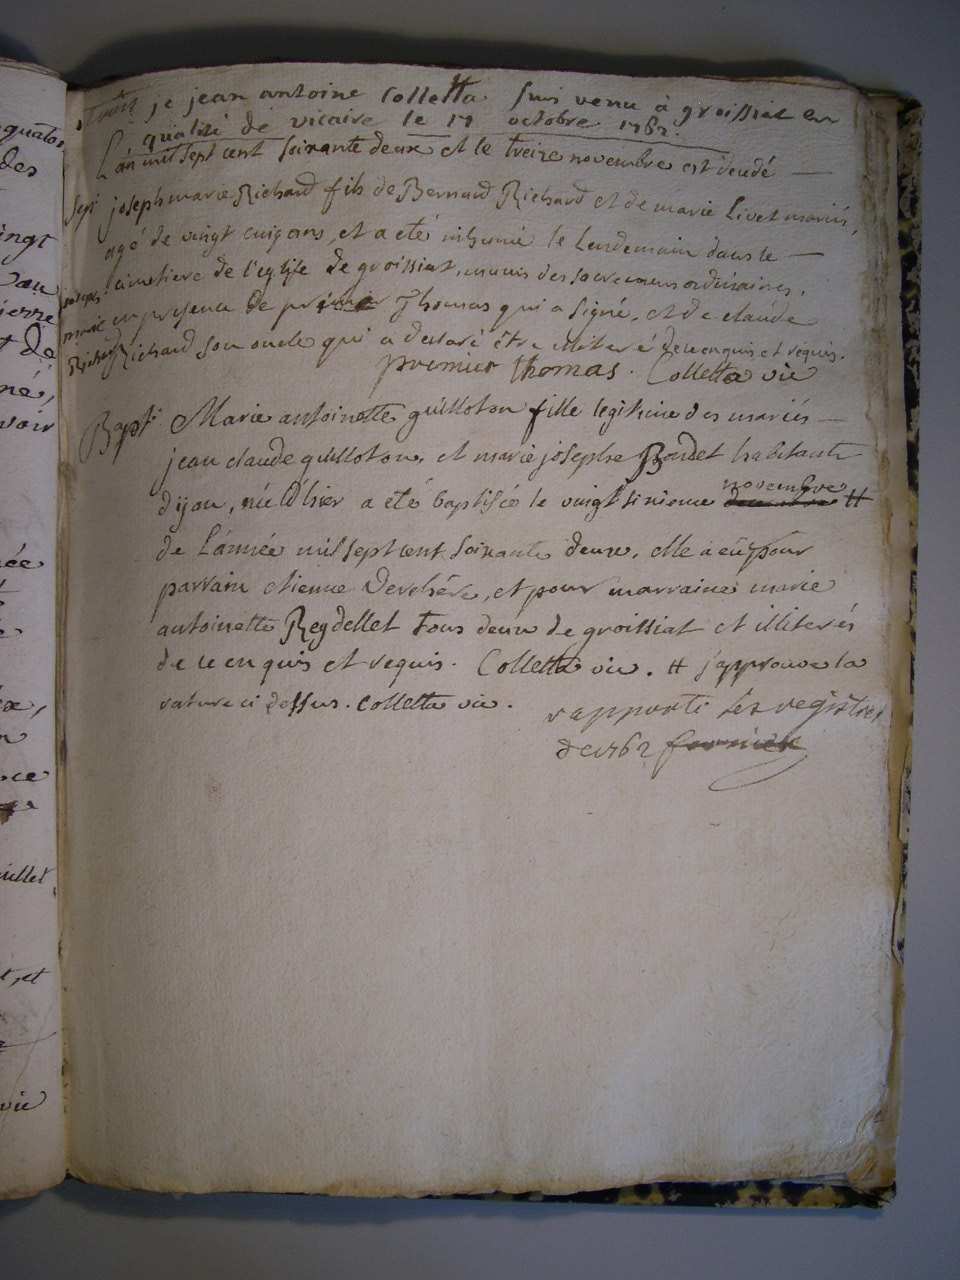 je jean antoine Colletta suis venu à groissiat en
qualité de vicaire le 17 octobre 1762.
L'an mil sept cent soixante deux et le treize novembre est décédé
joseph marie Richard fils de Bernard Richard et de marie Livet mariés,
agé de vingt cinq ans, et a eté inhumé le lendemain dans le
cimetiere de l'eglise de groissiat, munis des sacremens ordinaires,
en presence de premier Thomas qui a signé, et de claude
Richard son oncle qui a declaré être illiteré de ce enquis et requis.
premier thomas. Colletta vic
Sepi
joseph
marie
Richard
Bapt
Marie antoinette guilloton fille legitime des mariés
jean claude guilloton, et marie josephe Bondet habitants
dijon, née d'hier a eté baptisée le vingt sixieme novembre #
de L'année mil sept cent soixante deux, elle a eû pour
parrain etienne Verchère, et pour marraine marie
antoinette Reydellet tous deux de groissiat et illiterés
de ce enquis et requis. Colletta vic. # j'approuve la
rature ci dessus. Colletta vic.
rapporté les registres
de 1762
quator
des
ingt
né,
voir
uillet
t, et
vic